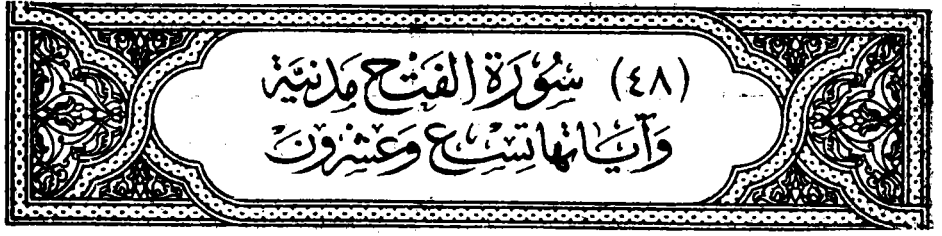 (٤٨) سُورَةُ الفَتْحِ مَدَنِيَّة
وَآيَاتُهَا تِسْعٌ وَعِشْرُونَ